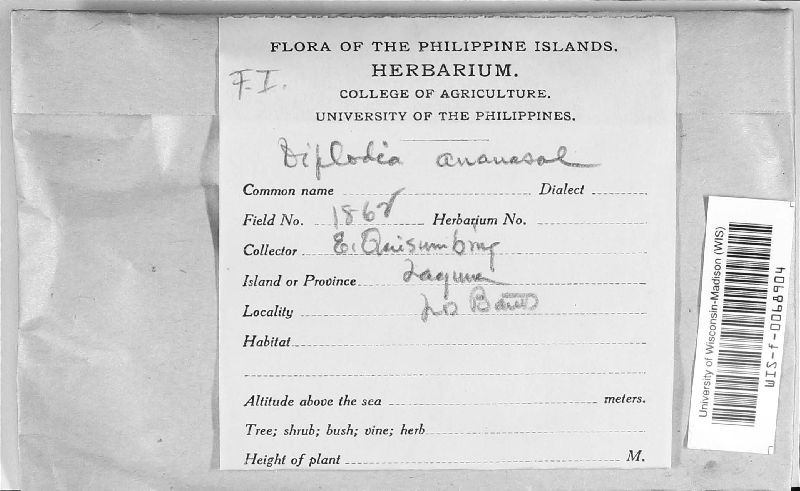 FLORA OF THE PHILIPPINE ISLANDS.
HERBARIUM.
F.I.
COLLEGE OF AGRICULTURE.
UNIVERSITY OF THE PHILIPPINES.
Diplodia ananasae
Common name Dialect
Field No. 1862 Herbarium No.
Collector E. Quisumbing
Island or Province Laguna
Locality Los Baños
Habitat
Altitude above the sea meters.
Tree; shrub; bush; vine; herb
Height of plant M.
University of Wisconsin-Madison (WIS)
WIS-f-0068904